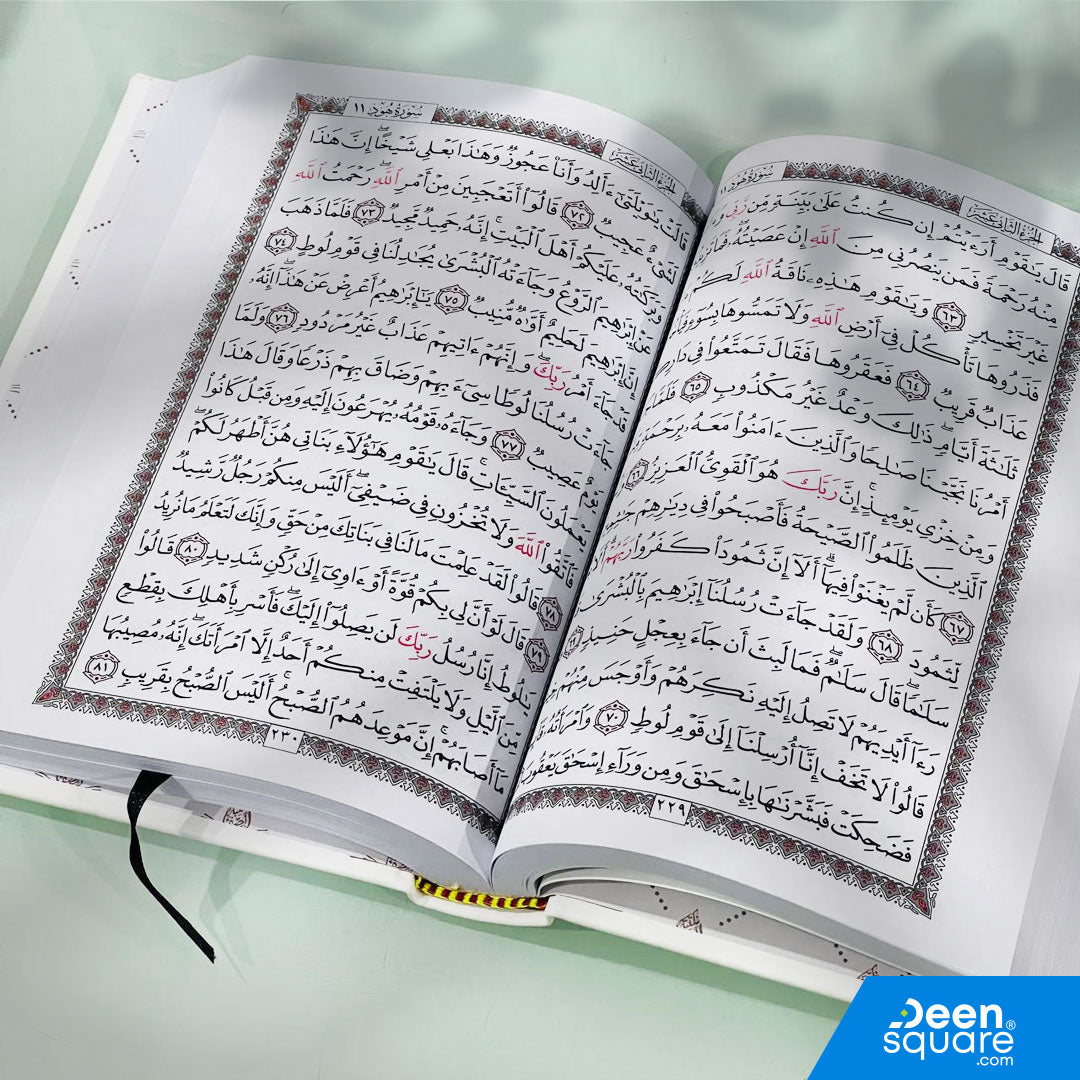 سُورَةُ هُودٍ ١١
الجُزْءُ الثَّانِي عَشَر
قَالَ يَٰقَوْمِ أَرَءَيْتُمْ إِن كُنتُ عَلَىٰ بَيِّنَةٍ مِّن رَّبِّي
مِنْهُ رَحْمَةً فَمَن يَنصُرُنِي مِنَ ٱللَّهِ إِنْ عَصَيْتُهُۥ
غَيْرَ تَخْسِيرٍ ٦٣ وَيَٰقَوْمِ هَٰذِهِۦ نَاقَةُ ٱللَّهِ لَكُمْ
فَذَرُوهَا تَأْكُلْ فِيٓ أَرْضِ ٱللَّهِ وَلَا تَمَسُّوهَا بِسُوٓءٍ
عَذَابٌ قَرِيبٌ ٦٤ فَعَقَرُوهَا فَقَالَ تَمَتَّعُوا۟ فِي
ثَلَٰثَةَ أَيَّامٍۖ ذَٰلِكَ وَعْدٌ غَيْرُ مَكْذُوبٍ ٦٥
أَمْرُنَا نَجَّيْنَا صَٰلِحًا وَٱلَّذِينَ ءَامَنُوا۟ مَعَهُۥ بِرَحْمَةٍ
وَمِنْ خِزْيِ يَوْمِئِذٍۗ إِنَّ رَبَّكَ هُوَ ٱلْقَوِيُّ ٱلْعَزِيزُ ٦٦
ٱلَّذِينَ ظَلَمُوا۟ ٱلصَّيْحَةُ فَأَصْبَحُوا۟ فِي دِيَٰرِهِمْ
٦٧ كَأَن لَّمْ يَغْنَوْا۟ فِيهَآۗ أَلَآ إِنَّ ثَمُودَا۟ كَفَرُوا۟ رَبَّهُمْۗ
لِّثَمُودَ ٦٨ وَلَقَدْ جَآءَتْ رُسُلُنَآ إِبْرَٰهِيمَ بِٱلْبُشْرَىٰ
سَلَٰمًاۖ قَالَ سَلَٰمٌۖ فَمَا لَبِثَ أَن جَآءَ بِعِجْلٍ حَنِيذٍ
رَءَآ أَيْدِيَهُمْ لَا تَصِلُ إِلَيْهِ نَكِرَهُمْ وَأَوْجَسَ مِنْهُمْ
قَالُوا۟ لَا تَخَفْ إِنَّآ أُرْسِلْنَآ إِلَىٰ قَوْمِ لُوطٍ ٧٠ وَٱمْرَأَتُهُۥ
فَضَحِكَتْ فَبَشَّرْنَٰهَا بِإِسْحَٰقَ وَمِن وَرَآءِ إِسْحَٰقَ يَعْقُوبَ
٢٢٩
سُورَةُ هُودٍ ١١
الجُزْءُ الثَّانِي عَشَر
قَالَتْ يَٰوَيْلَتَىٰٓ ءَأَلِدُ وَأَنَا۠ عَجُوزٌ وَهَٰذَا بَعْلِي شَيْخًاۖ إِنَّ هَٰذَا
لَشَيْءٌ عَجِيبٌ ٧٢ قَالُوٓا۟ أَتَعْجَبِينَ مِنْ أَمْرِ ٱللَّهِۖ رَحْمَتُ ٱللَّهِ
وَبَرَكَٰتُهُۥ عَلَيْكُمْ أَهْلَ ٱلْبَيْتِۚ إِنَّهُۥ حَمِيدٌ مَّجِيدٌ ٧٣ فَلَمَّا ذَهَبَ
عَنْ إِبْرَٰهِيمَ ٱلرَّوْعُ وَجَآءَتْهُ ٱلْبُشْرَىٰ يُجَٰدِلُنَا فِي قَوْمِ لُوطٍ ٧٤
إِنَّ إِبْرَٰهِيمَ لَحَلِيمٌ أَوَّٰهٌ مُّنِيبٌ ٧٥ يَٰٓإِبْرَٰهِيمُ أَعْرِضْ عَنْ هَٰذَآۖ إِنَّهُۥ
قَدْ جَآءَ أَمْرُ رَبِّكَۖ وَإِنَّهُمْ ءَاتِيهِمْ عَذَابٌ غَيْرُ مَرْدُودٍ ٧٦ وَلَمَّا
جَآءَتْ رُسُلُنَا لُوطًا سِيٓءَ بِهِمْ وَضَاقَ بِهِمْ ذَرْعًا وَقَالَ هَٰذَا
يَوْمٌ عَصِيبٌ ٧٧ وَجَآءَهُۥ قَوْمُهُۥ يُهْرَعُونَ إِلَيْهِ وَمِن قَبْلُ كَانُوا۟
يَعْمَلُونَ ٱلسَّيِّـَٔاتِۚ قَالَ يَٰقَوْمِ هَٰٓؤُلَآءِ بَنَاتِي هُنَّ أَطْهَرُ لَكُمْۖ
فَٱتَّقُوا۟ ٱللَّهَ وَلَا تُخْزُونِ فِي ضَيْفِيٓۖ أَلَيْسَ مِنكُمْ رَجُلٌ رَّشِيدٌ
٧٨ قَالُوا۟ لَقَدْ عَلِمْتَ مَا لَنَا فِي بَنَاتِكَ مِنْ حَقٍّ وَإِنَّكَ لَتَعْلَمُ مَا نُرِيدُ
٧٩ قَالَ لَوْ أَنَّ لِي بِكُمْ قُوَّةً أَوْ ءَاوِيٓ إِلَىٰ رُكْنٍ شَدِيدٍ ٨٠ قَالُوا۟
يَٰلُوطُ إِنَّا رُسُلُ رَبِّكَ لَن يَصِلُوٓا۟ إِلَيْكَۖ فَأَسْرِ بِأَهْلِكَ بِقِطْعٍ
مِّنَ ٱلَّيْلِ وَلَا يَلْتَفِتْ مِنكُمْ أَحَدٌ إِلَّا ٱمْرَأَتَكَۖ إِنَّهُۥ مُصِيبُهَا
مَآ أَصَابَهُمْۚ إِنَّ مَوْعِدَهُمُ ٱلصُّبْحُۚ أَلَيْسَ ٱلصُّبْحُ بِقَرِيبٍ ٨١
٢٣٠
Deen
square®
.com